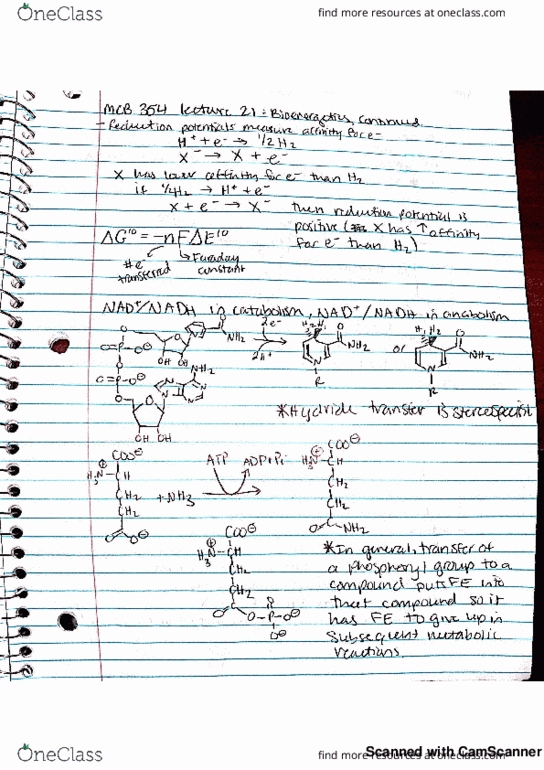 OneClass
find more resources at oneclass.com
MCB 354 lecture 21: Bioenergetics, continued
- Reduction potentials measure affinity for e-
H+ + e- → 1/2 H2
X- → X + e-
X has lower affinity for e- than H2
if 1/2 H2 → H+ + e-
X + e- → X-
then reduction potential is
positive (X has ↑ affinity
for e- than H2)
ΔG'° = -nFΔE'°
# e-
transferred
Faraday
constant
NAD+/NADH in catabolism, NAD+/NADH in anabolism
2e-
2H+
NH2
or
NH2
NH2
R
R
OH OH
NH2
OH OH
*Hydride transfer is stereospecific
COO⊖
H3N⊕ CH
CH2
CH2
+ NH3
ATP
ADP+Pi
COO⊖
H3N⊕ CH
CH2
CH2
O C NH2
COO⊖
H3N⊕ CH
CH2
CH2
O-P-O⊖
O⊖
*In general, transfer of
a phosphoryl group to a
compound puts FE into
that compound so it
has FE to give up in
subsequent metabolic
reactions.
OneClass
find more resources at oneclass.com
Scanned with CamScanner